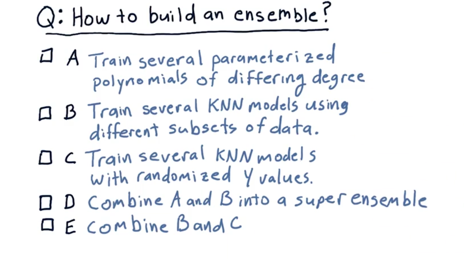 Q: How to build an ensemble?
A Train several parameterized
polynomials of differing degree
B Train several KNN models using
different subsets of data.
C Train several KNN models
with randomized Y values.
D Combine A and B into a super ensemble
E Combine B and C